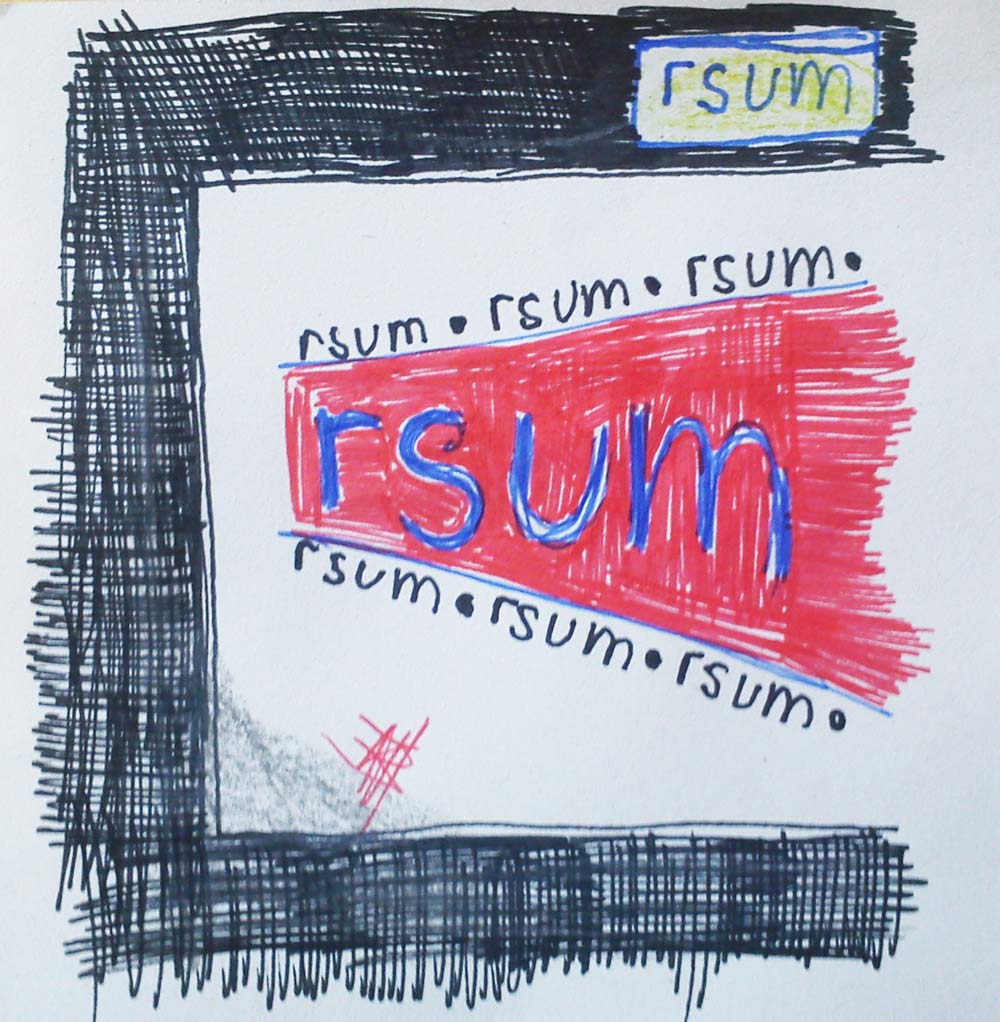 rsum
rsum • rsum • rsum •
rsum
rsum • rsum • rsum •